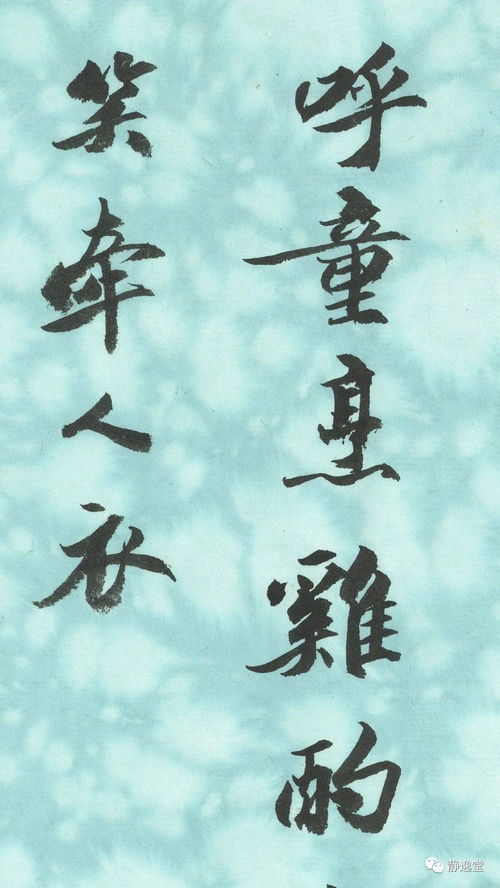 呼童烹雞酌
笑牽人衣
静逸堂